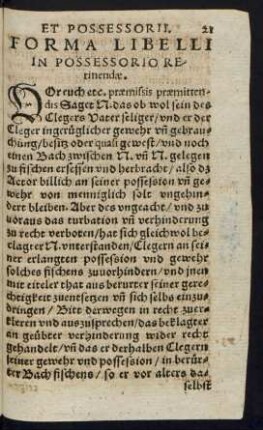 ET POSSESSORII. 21
FORMA LIBELLI
IN POSSESSORIO RE-
tinendæ.
VOr euch etc. præmissis præmitten-
dis Saget N. das ob wol sein des
Clegers Vater seliger/ vnd er der
Cleger ingerüglicher gewehr vñ gebrau-
chung/ besitz oder quasi gewest/ vnd noch
einen Bach zwischen N. vñ N. gelegen
zu fischen ersessen vnd herbracht/ also dz
Actor billich an seiner possession vñ ge-
wehr von menniglich solt vngehin-
dert bleiben. Aber des vngeacht/ vnd zu
uoraus das turbation vñ verhinderung
zu recht verboten/ hat sich gleichwol be-
clagter N. vnterstanden/ Clegern an sei-
ner erlangten possession vnd gewehr
solches fischens zuuorhindern/ vnd jnen
mit eiteler that aus berurter seiner gere-
chtigkeit zuentsetzen vñ sich selbs einzu-
dringen/ Bitt derwegen in recht zuer-
kleren vnd auszusprechen/ das beklagter
an geübter verhinderung wider recht
gehandelt/ vñ das er derhalben Clegern
seiner gewehr vnd possession/ in berür-
ter Bach fischens/ so er vor alters da-
selbst